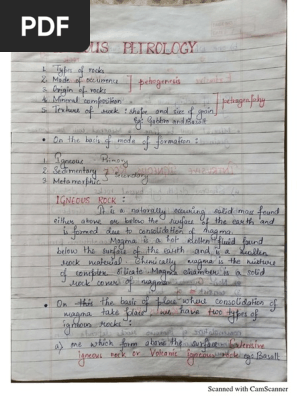 PDF
OUS PETROLOGY
1. Types of rocks
2. Mode of occurrence
3. Origin of rocks
petrogenesis
4. Mineral composition
5. Texture of rock : shape and size of grain
petrography
Eg: Gabbro and Basalt
• On the basis of mode of formation :
1. Igneous Primary
2. Sedimentary Secondary
3. Metamorphic
IGNEOUS ROCK :
It is a naturally occurring solid mass found
either above or below the surface of the earth and
is formed due to consolidation of magma.
Magma is a hot molten fluid found
below the surface of the earth and is a molten
rock material. Chemically magma is the mixture
of complex silicate. Magma chamber is a solid
rock cover of magma
• On the basis of place where consolidation of
magma take place, we have two types of
igneous rocks :
a) one which form above the surface :
igneous rock or Volcanic igneous rock eg: Basalt
Scanned with CamScanner